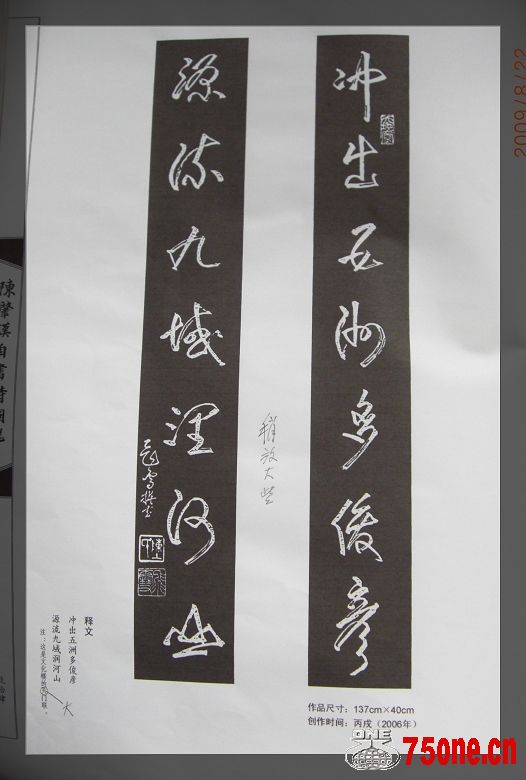 冲出五洲多俊彦
源流九域润河山
稍放大些
释文
冲出五洲多俊彦
源流九域润河山
大
作品尺寸：137cm×40cm
创作时间：丙戌（2006年）
2009/8/22
ONE
75one.cn